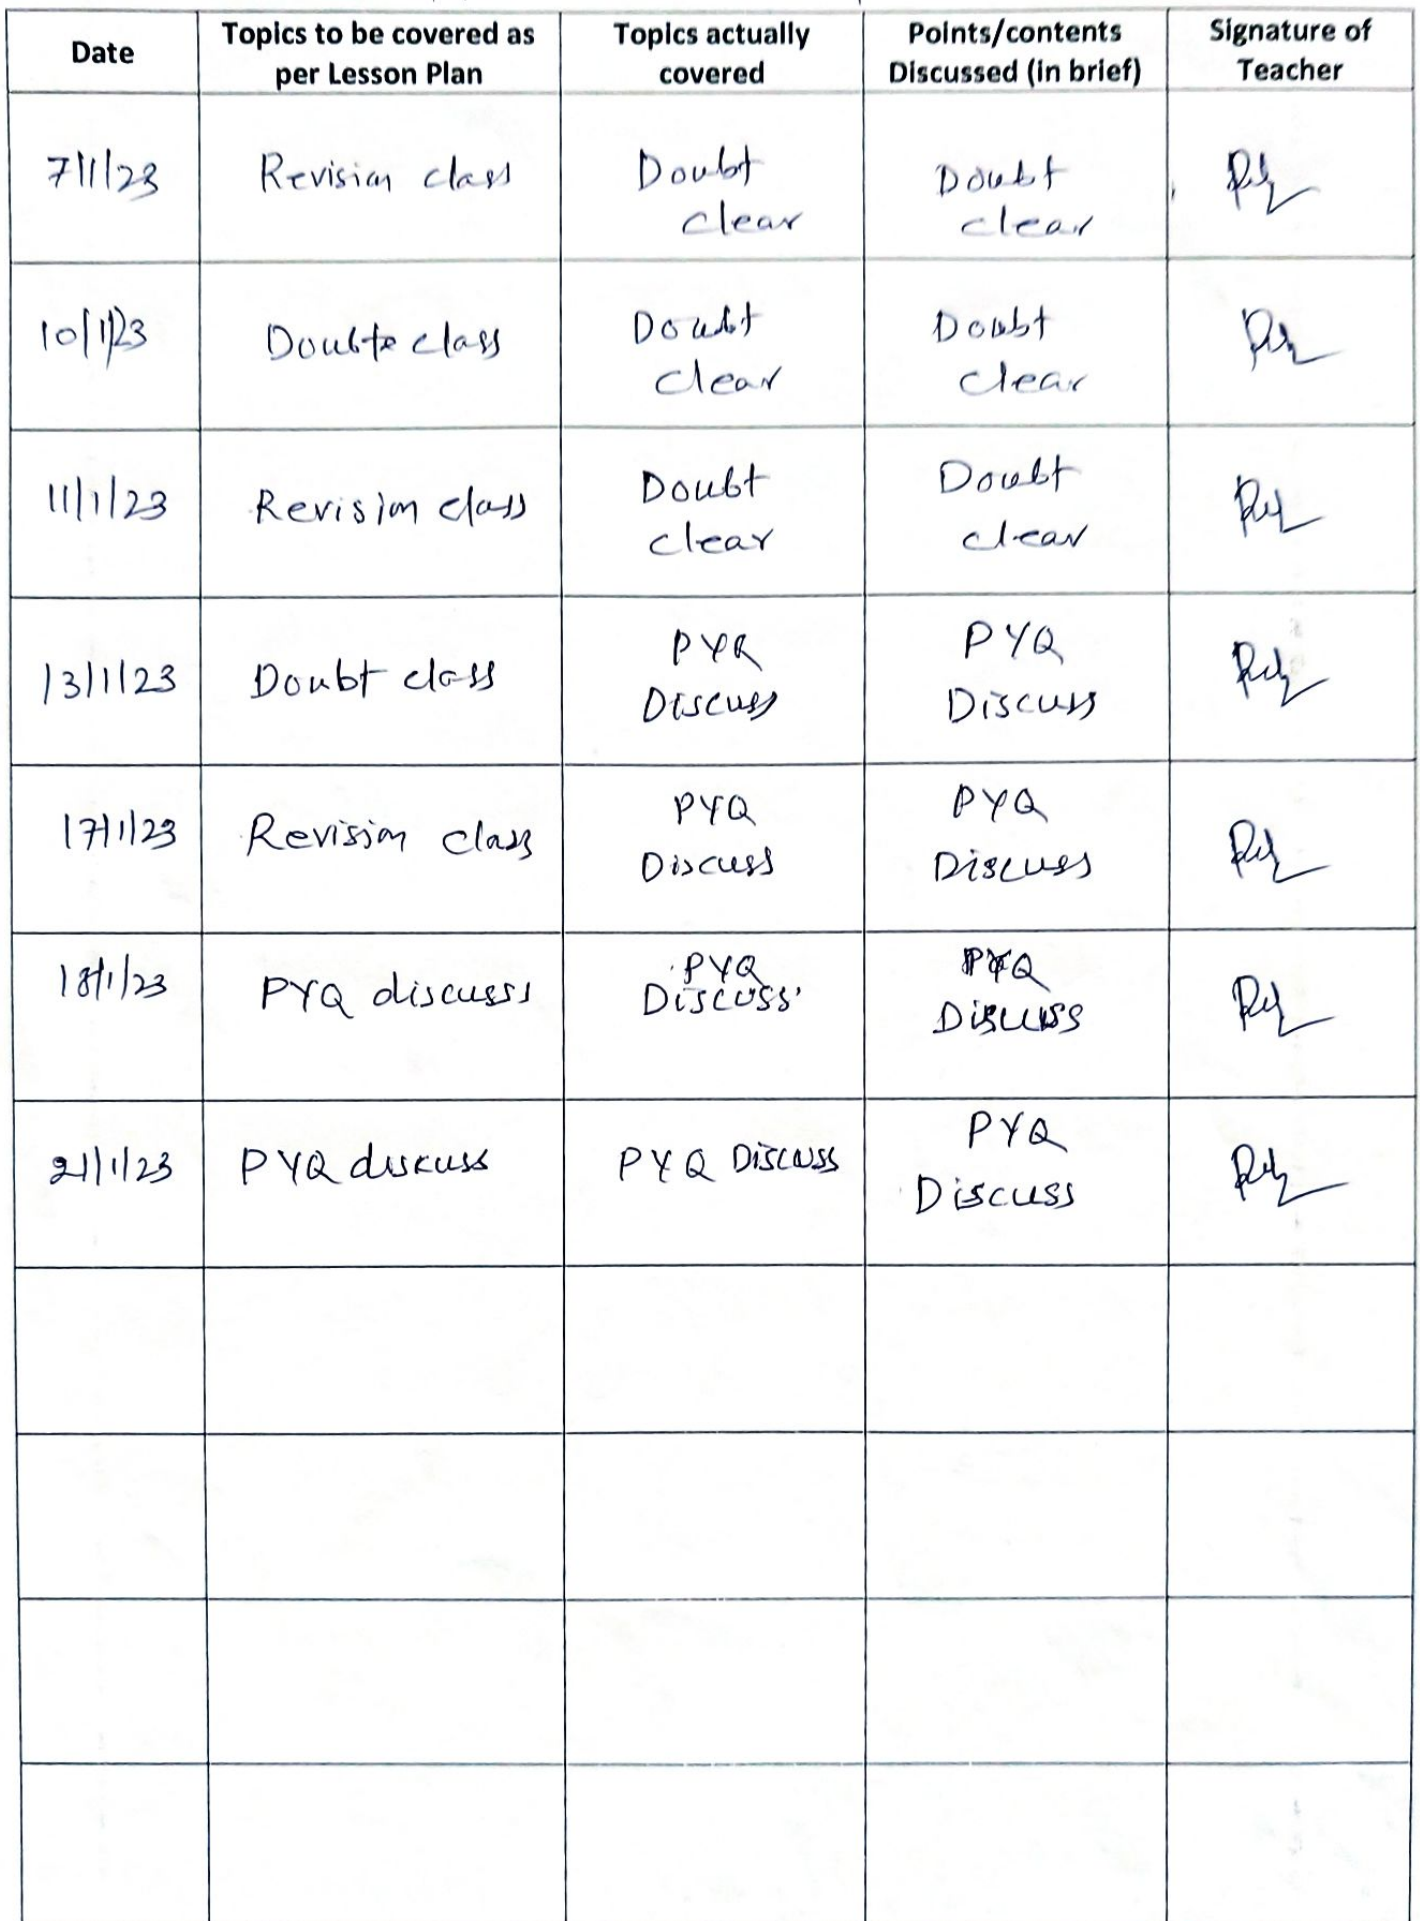 Date
Topics to be covered as
per Lesson Plan
Topics actually
covered
Points/contents
Discussed (in brief)
Signature of
Teacher
7/1/23
Revision class
Doubt
clear
Doubt
clear
10/1/23
Doubte class
Doubt
clear
Doubt
clear
11/1/23
Revision class
Doubt
clear
Doubt
clear
13/1/23
Doubt class
PYQ
Discuss
PYQ
Discuss
17/1/23
Revision class
PYQ
Discuss
PYQ
Discuss
18/1/23
PYQ discusss
PYQ
Discuss
PYQ
Discuss
21/1/23
PYQ discuss
PYQ Discuss
PYQ
Discuss